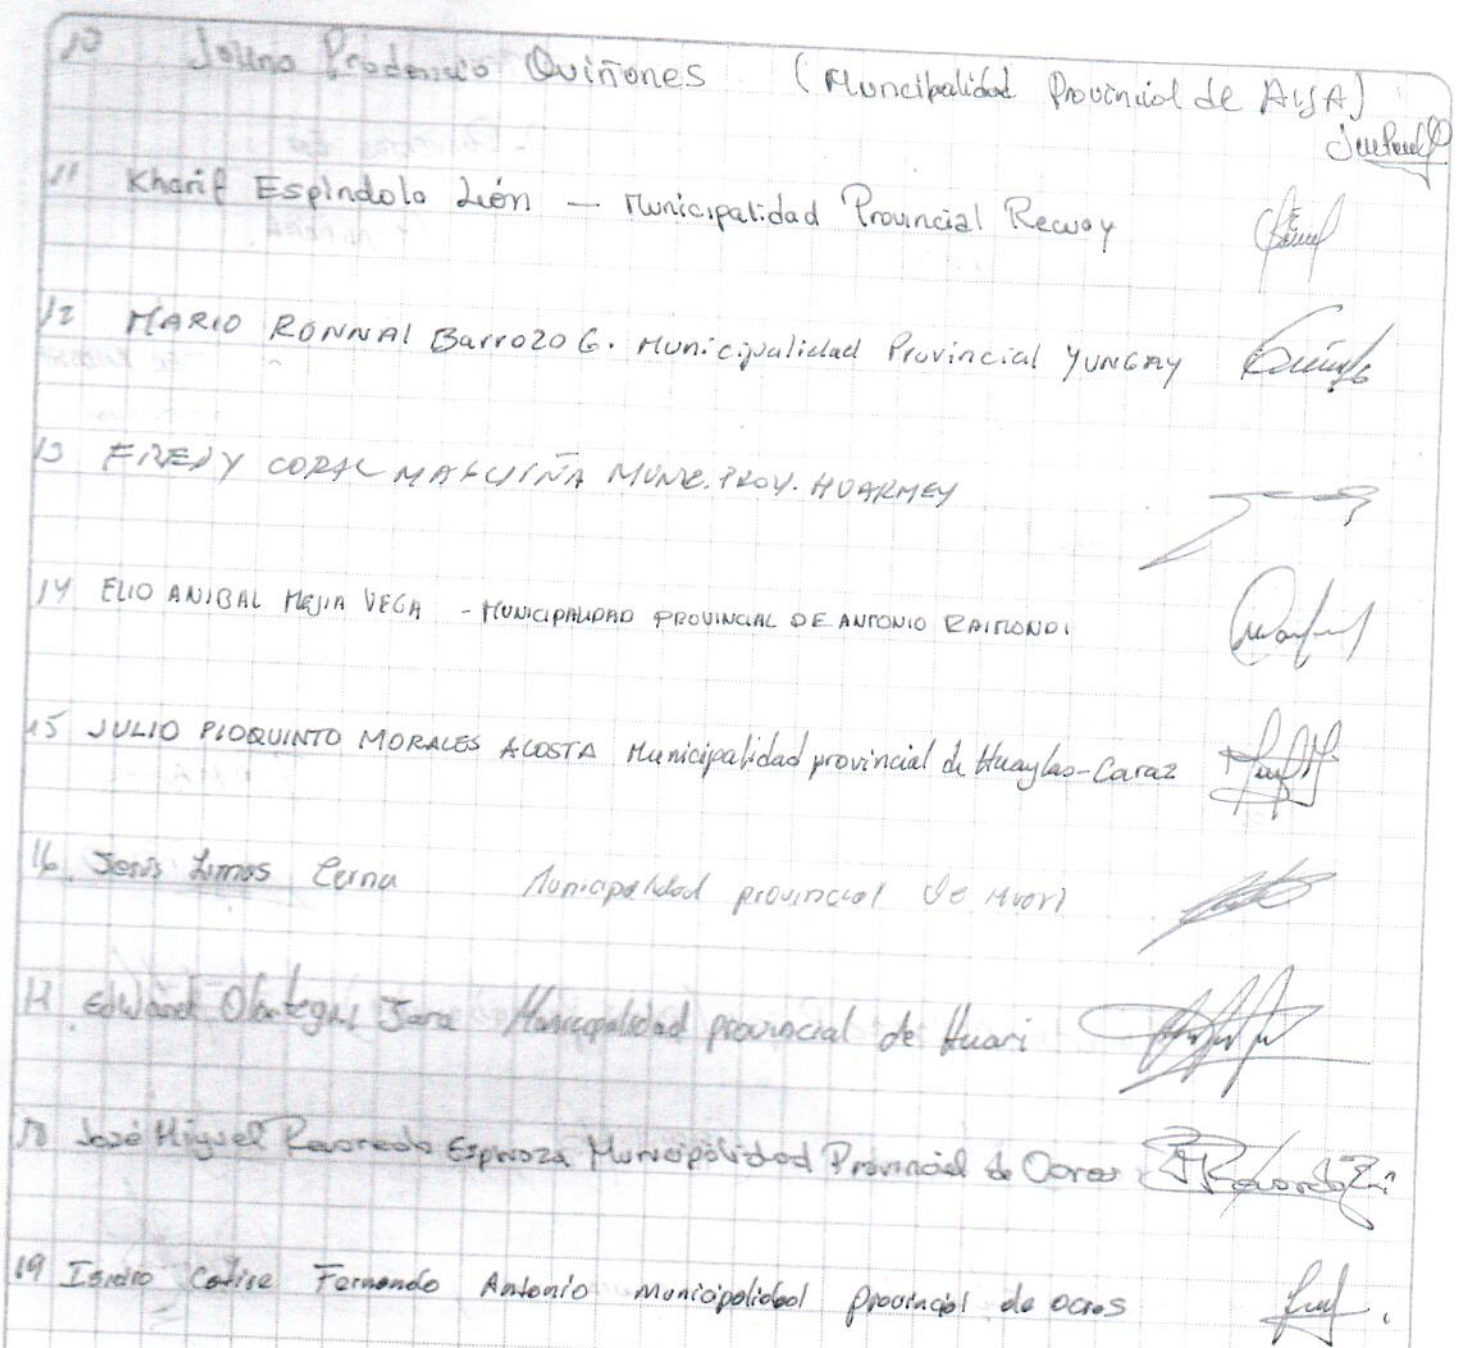 10 Prudencio Quiñones (Municipalidad Provincial de AIJA)
11 Kharif Espindola León — Municipalidad Provincial Recuay
12 MARIO RONNAl Barrozo G. Municipalidad Provincial YUNGAY
13 FREDY CORAL MAGUIÑA MUNIC. PROV. HUARMEY
14 ELIO ANIBAL MEJIA VEGA - MUNICIPALIDAD PROVINCIAL DE ANTONIO RAIMONDI
15 JULIO PIOQUINTO MORALES ACOSTA Municipalidad provincial de Huaylas-Caraz
16. Cerna Municipalidad provincial de Huari
Jara Municipalidad provincial de Huari
18 José Miguel Revoredo Espinoza Municipalidad Provincial de Ocros
19 Isidro Fernando Antonio municipalidad provincial de ocros